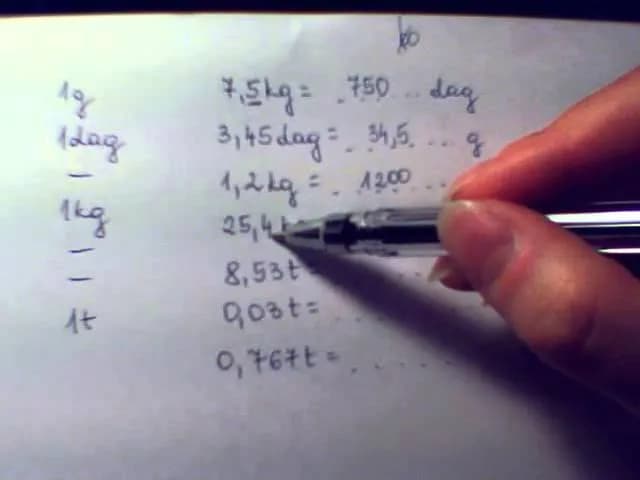 1g 7,5kg = .750... dag
1dag 3,45dag = .34,5.... g
– 1,2kg = .1200...
1kg 25,4
–
– 8,53t =
1t 0,03t = . . . .
0,767t = . . . . .